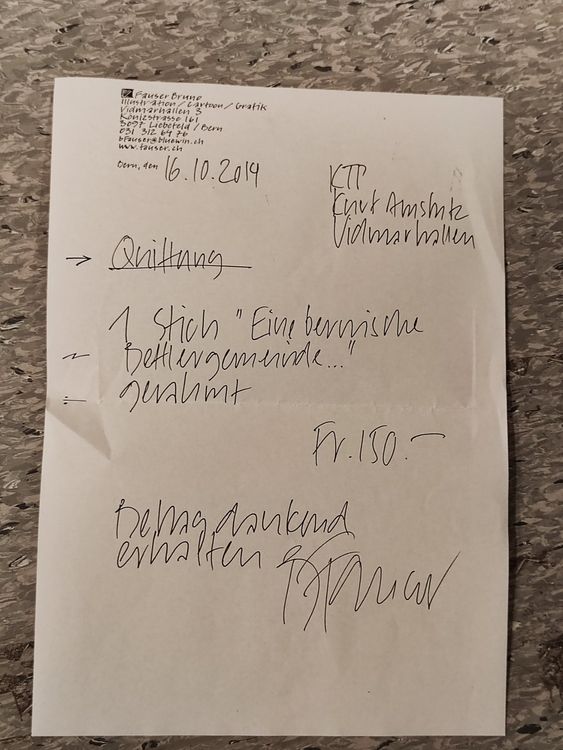 Fauser Bruno
Illustration / Cartoon / Grafik
Vidmarhallen 3
Könizstrasse 161
3097 Liebefeld / Bern
031 312 69 76
bfauser@bluewin.ch
www.fauser.ch
Bern, den 16.10.2019
KTP
Kurt Amstutz
Vidmarhallen
→ Quittung
1 Stich "Eine bernische
Bettlergemeinde..."
gerahmt
Fr. 150.—
Betrag dankend
erhalten
BFauser